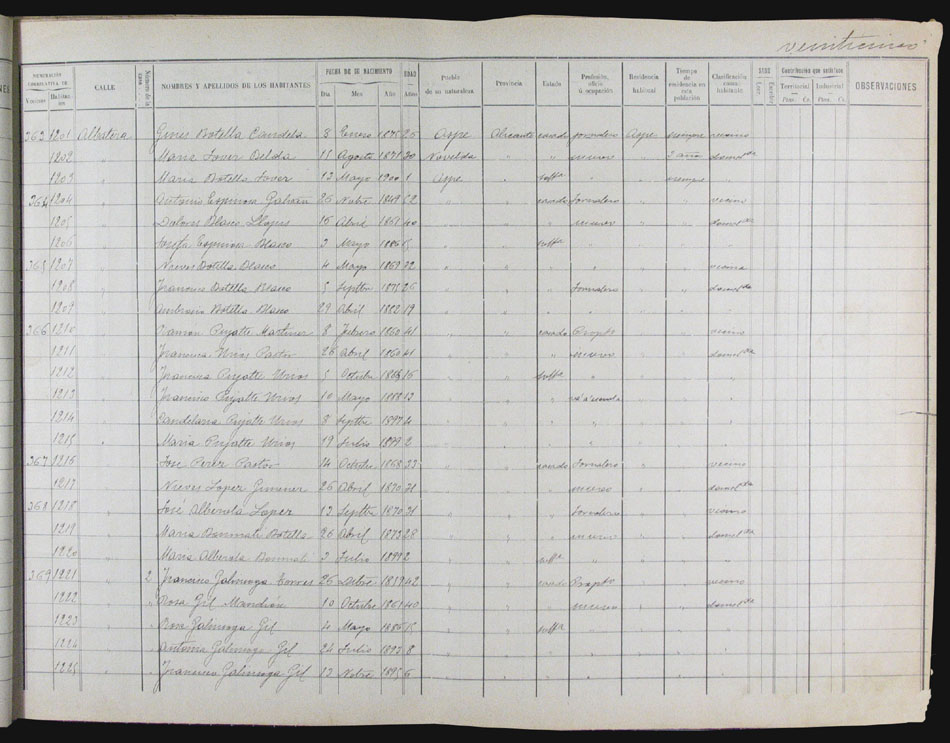 veinticinco
NUMERACIÓN CORRELATIVA DE
Vecinos
Habitantes
CALLE
Número de la casa
NOMBRES Y APELLIDOS DE LOS HABITANTES
FECHA DE SU NACIMIENTO
Día
Mes
Año
EDAD
Años
Pueblo de su naturaleza
Provincia
Estado
Profesión, oficio ú ocupación.
Residencia habitual
Tiempo de residencia en esta población
Clasificación como habitante
SABE
Leer
Escribir
Contribución que satisface
Territorial
Industrial
Ptas. Cs.
Ptas. Cs.
OBSERVACIONES
363 1201 Albatera Gines Botella Candela 8 Enero 1875 26 Aspe Alicante casado jornalero Aspe siempre vecino
1202 " Maria Jover Belda 15 Agosto 1871 30 Novelda " " " 3 años domcda
1203 " Maria Botella Jover 12 Mayo 1900 1 Aspe " soltª " " siempre
364 1204 " Antonio Espinosa Galvañ 25 Nobre 1849 52 " " casado Jornalero " " vecino
1205 " Dolores Blasco Llopis 16 Abril 1861 40 " " " " " domcda
1206 " Josefa Espinosa Blasco 2 Mayo 1886 15 " " soltª " " "
365 1207 " Nieves Botella Blasco 4 Mayo 1869 32 " " " " " vecina
1208 " Francisco Botella Blasco 5 Septbre 1875 26 " " " Jornalero " "
1209 " Ambrosio Botella Blasco 29 Abril 1882 19 " " " " " "
366 1210 " Ramon Pujalte Martinez 8 Febrero 1860 41 " " casado " " vecino
1211 " Francisca Urios Pastor 26 Abril 1860 41 " " " " " domcda
1212 " Francisca Pujalte Urios 5 Octubre " " soltª " " "
1213 " Francisco Pujalte Urios 10 Mayo 1888 13 " " " va á escuela " "
1214 " Candelaria Pujalte Urios 8 Septbre 1897 4 " " " " " "
1215 " Maria Pujalte Urios 19 Julio 1899 2 " " " " " "
367 1216 " Jose Perez Pastor 14 Octubre 1868 33 " " casado Jornalero " " vecino
1217 " Nieves Lopez Gimenez 26 Abril 1870 31 " " " " " domcda
368 1218 " José Alberola Lopez 13 Septbre 1870 31 " " " Jornalero " " vecino
1219 " Maria Bonmati Botella 26 Abril 1873 28 " " " " " domcda
1220 " Maria Alberola Bonmati 2 Julio 1899 2 " " soltª " " "
369 1221 " 2 Francisco Galinsoga Torres 26 Dbre 1859 42 " " casado " " vecino
1222 " " Rosa Gil Mandión 10 Octubre 1861 40 " " " " " domcda
1223 " " Rosa Galinsoga Gil 4 Mayo 1886 15 " " soltª " " "
1224 " " Antonia Galinsoga Gil 24 Julio 1893 8 " " " " " "
1225 " " Francisco Galinsoga Gil 13 Nobre 1895 6 " " " " " "